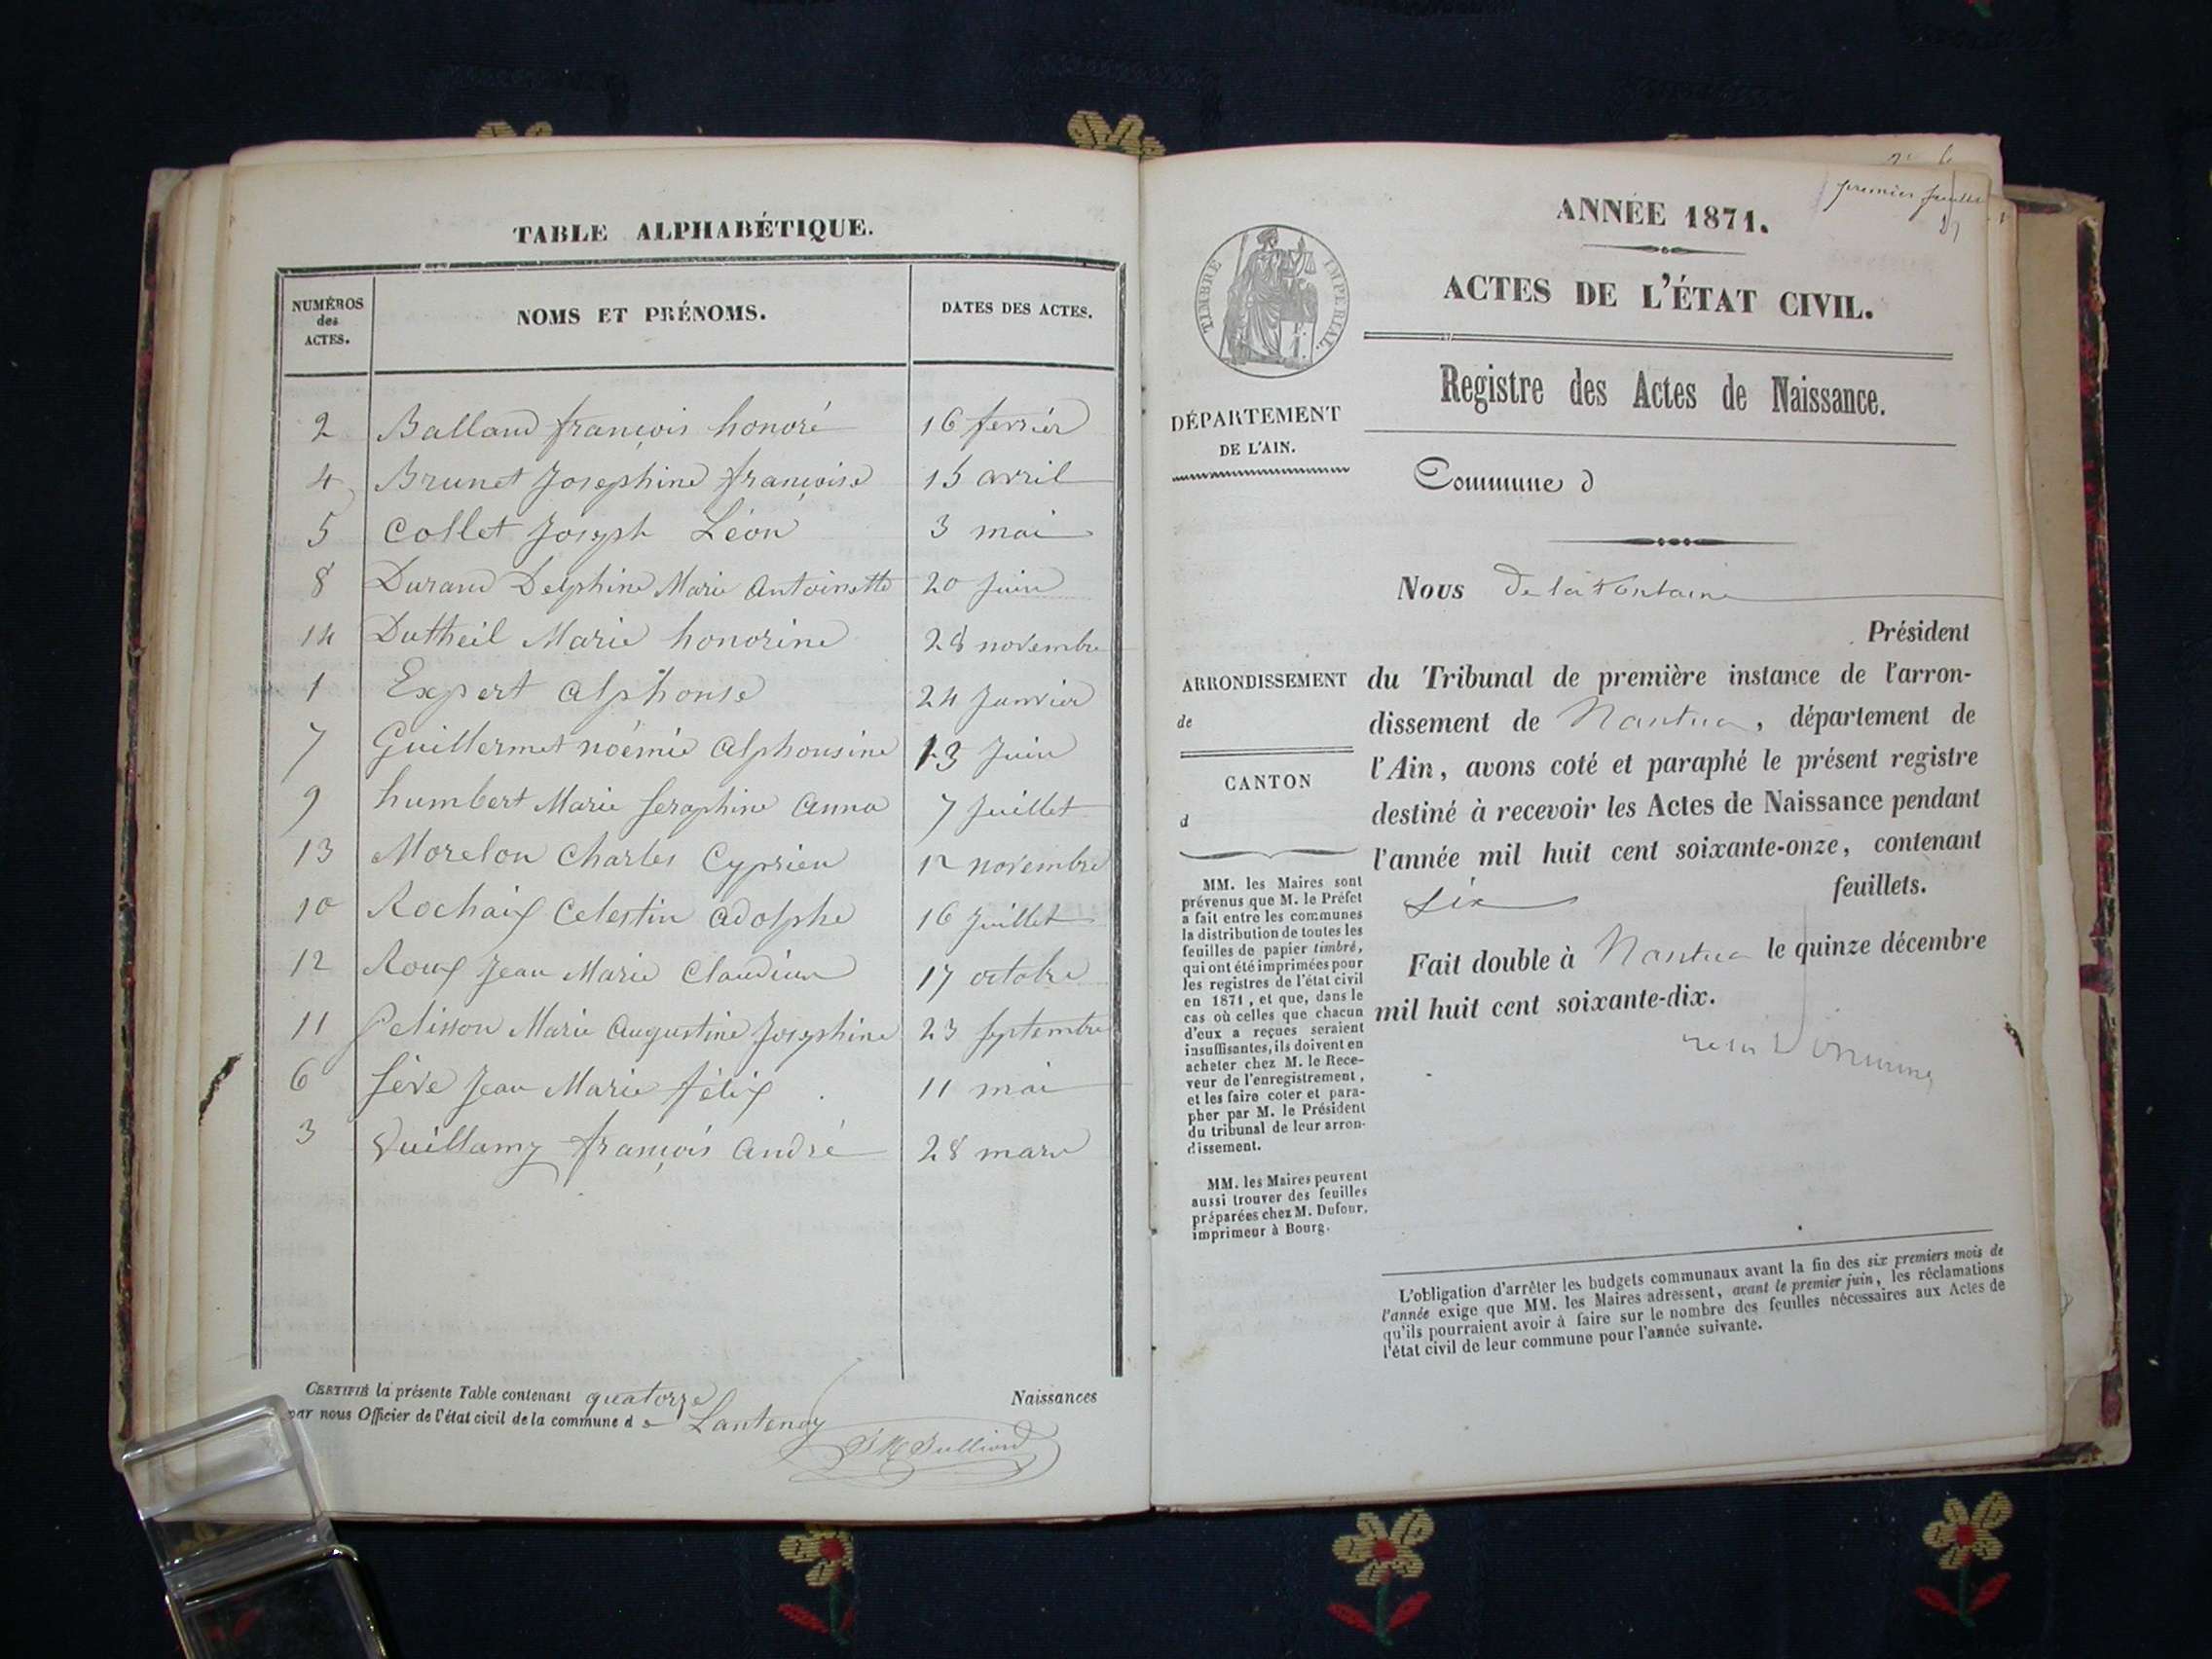 TABLE ALPHABÉTIQUE.
NUMÉROS des ACTES. NOMS ET PRÉNOMS. DATES DES ACTES.
2 Balland françois honoré 16 ferrier
4 Brunet Josephine françoise 15 avril
5 Collet Joseph Léon 3 mai
8 Durand Delphine Marie Antoinette 20 Juin
14 Dutheil Marie honorine 28 novembre
1 Expert alphonse 24 Janvier
7 Guillermet noémie alphonsine 13 Juin
9 humbert Marie Seraphine anna 7 Juillet
13 Morelon Charles Cyprien 12 novembre
10 Rochaix Celestin adolphe 16 Juillet
12 Roux Jean Marie Claudius 17 octobre
11 Pelisson Marie augustine Josephine 23 Septembre
6 Sève Jean Marie félix 11 mai
3 Vuillamy françois andré 28 mars
CERTIFIÉ la présente Table contenant quatorze Naissances
par nous Officier de l'état civil de la commune de Lantenay
premier feuillet
ANNÉE 1871.
TIMBRE IMPERIAL.
ACTES DE L'ÉTAT CIVIL.
Registre des Actes de Naissance.
DÉPARTEMENT
DE L'AIN.
Commune d
Nous De la Fontaine
Président
ARRONDISSEMENT
de
CANTON
d
du Tribunal de première instance de l'arron-
dissement de Nantua, département de
l'Ain, avons coté et paraphé le présent registre
destiné à recevoir les Actes de Naissance pendant
l'année mil huit cent soixante-onze, contenant
six feuillets.
Fait double à Nantua le quinze décembre
mil huit cent soixante-dix.
MM. les Maires sont
prévenus que M. le Préfet
a fait entre les communes
la distribution de toutes les
feuilles de papier timbré,
qui ont été imprimées pour
les registres de l'état civil
en 1871, et que, dans le
cas où celles que chacun
d'eux a reçues seraient
insuffisantes, ils doivent en
acheter chez M. le Rece-
veur de l'enregistrement,
et les faire coter et para-
pher par M. le Président
du tribunal de leur arron-
dissement.
MM. les Maires peuvent
aussi trouver des feuilles
préparées chez M. Dufour,
imprimeur à Bourg.
L'obligation d'arrêter les budgets communaux avant la fin des six premiers mois de
l'année exige que MM. les Maires adressent, avant le premier juin, les réclamations
qu'ils pourraient avoir à faire sur le nombre des feuilles nécessaires aux Actes de
l'état civil de leur commune pour l'année suivante.